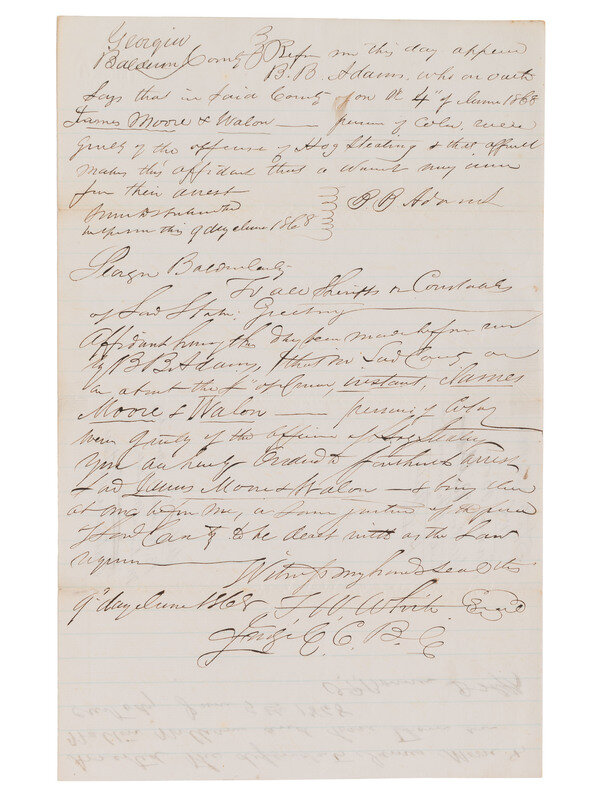 Georgia
Baldwin County } Before me this day appeared
B. B. Adams, who on oath
Says that in Said County, & on the 4th of June 1868
James Moore & Walon — persons of Color, were
guilty of the offense of Hog Stealing & that affiant
makes this affidavit that a warrant may issue
for their arrest
before me this 9 day June 1868 } B. B. Adams
Georgia Baldwin County
To all Sheriffs or Constables
of Said State. Greeting
Affidavit having this day been made before me
by B. B. Adams, that in Said County, on
or about the 4th of June, instant James
Moore & Walon — persons of Color
were guilty of the offense of Hog Stealing
You are hereby Ordered to forthwith arrest
Said James Moore & Walon — & bring them
at once before me, or Some Justice of the peace
of Said County to be dealt with as the Law
requires
Witness my hand & Seal this
9th day June 1868 T. W. White Seal
Judge C. C. B. C.